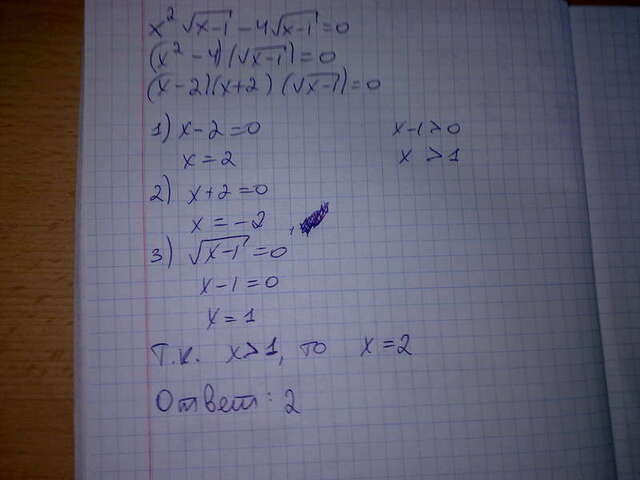 x² √x-1 - 4√x-1 = 0
(x² - 4)(√x-1) = 0
(x-2)(x+2)(√x-1) = 0
1) x-2=0
x-1>0
x=2
x>1
2) x+2=0
x=-2
3) √x-1=0
x-1=0
x=1
Т.к. x>1, то x=2
Ответ: 2